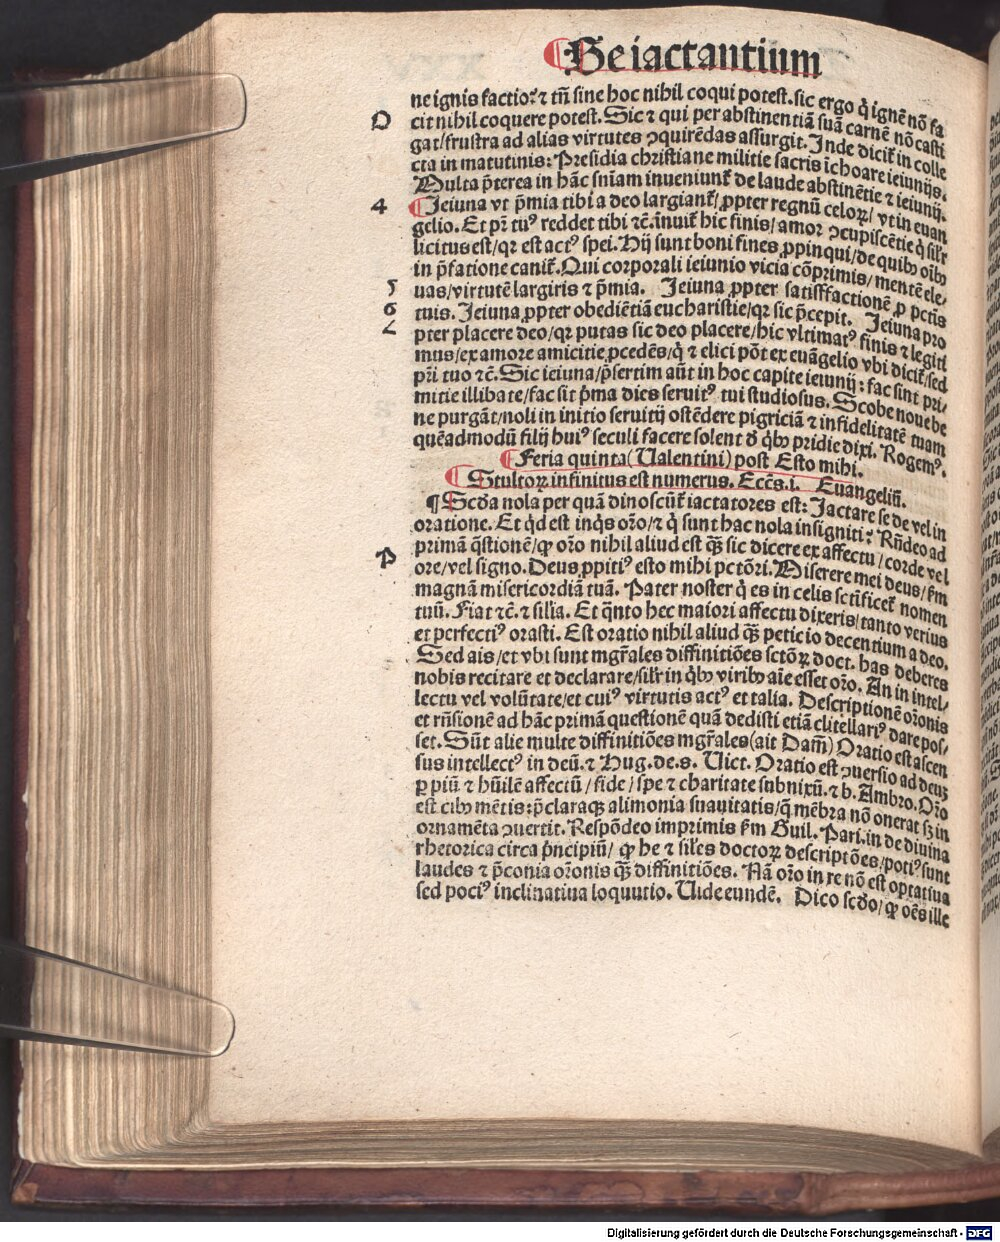 ¶ Se iactantium
ne ignis factio? ⁊ tñ sine hoc nihil coqui potest. sic ergo q̇ ignē nō fa
O cit nihil coquere potest. Sic ⁊ qui per abstinentiā suā carnē nō casti
gat/frustra ad alias virtutes ↄquirēdas assurgit. Inde dicit̄ in colle
cta in matutinis: Presidia christiane militie sacris īchoare ieiunijs.
Multa p̄terea in hāc sniam inueniunt̄ de laude abstinētie ⁊ ieiunij.
4 ¶ Ieiuna vt p̄mia tibi a deo largiant̄/ ꝓpter regnū celoꝝ/ vt in euan
gelio. Et pr̄ tuꝰ reddet tibi ⁊c̄. inuit̄ hic finis/ amor ↄcupiscētie q̇ sil̄r
licitus est/qꝛ est actꝰ spei. Hij sunt boni fines ꝓpinqui/de quibꝰ oībꝰ
in p̄fatione canit̄. Qui corporali ieiunio vicia cōprimis/ mentē ele/
5 uas/virtutē largiris ⁊ p̄mia. Ieiuna ꝓpter satisffactionē ꝓ pctīs
6 tuis. Ieiuna ꝓpter obediētiā eucharistie/qꝛ sic p̄cepit. Ieiuna pro
7 pter placere deo/qꝛ putas sic deo placere/hic vltimatꝰ finis ⁊ legiti
mus/ex amore amicitie ꝓcedēs/q̇ ⁊ elici pōt ex euāgelio vbi dicit̄/sed
pr̄i tuo ⁊c̄. Sic ieiuna/p̄sertim aūt in hoc capite ieiunij: fac sint pri/
mitie illibate/fac sit p̄ma dies seruitꝰ tui studiosus. Scobe noue be
ne purgāt/noli in initio seruitij ostēdere pigriciā ⁊ infidelitatē tuam
quēadmodū filij huiꝰ seculi facere solent d̄ q̇bꝰ pridie dixi. Rogemꝰ.
¶ Feria quinta (Ualentini) post Esto mihi.
¶ Stultoꝝ infinitus est numerus. Eccs̄. i. Euangeliū.
¶ Scd̄a nola per quā dinoscūt̄ iactatores est: Iactare se de vel in
oratione. Et q̇d est inq̇s oro/⁊ q̇ sunt hac nola insigniti? Rn̄deo ad
P primā q̄stionē/ꝙ oro nihil aliud est q̄ꝫ sic dicere ex affectu/ corde vel
ore/vel signo. Deus ꝓpitiꝰ esto mihi pctōri. Miserere mei deus/ ẜm
magnā misericordiā tuā. Pater noster q̇ es in celis sctīficet̄ nomen
tuū. Fiat ⁊c̄. ⁊ silīa. Et q̇nto hec maiori affectu dixeris/ tanto verius
et perfectiꝰ orasti. Est oratio nihil aliud q̄ꝫ peticio decentium a deo.
Sed ais/et vbi sunt mgr̄ales diffinitiōes sctōꝝ doct. has deberes
nobis recitare et declarare/sil̄r in q̇bꝰ viribꝰ aīe esset oro. An in intel/
lectu vel volūtate/et cuiꝰ virtutis actꝰ et talia. Descriptionē orōnis
et rn̄sionē ad hāc primā questionē quā dedisti etiā clitellariꝰ dare pos/
set. Sūt alie multe diffinitiōes mgr̄ales (ait Dam̄) Oratio est ascen
sus intellectꝰ in deū. ⁊ Hug. de. s. Uict. Oratio est ↄuersio ad deuꝫ
ꝑ piū ⁊ hūilē affectū/ fide/ spe ⁊ charitate subnixū. ⁊ b. Ambro. Oro
est cibꝰ mētis: p̄claraqꝫ alimonia suauitatis/q̄ mēbra nō onerat sꝫ in
ornamēta ↄuertit. Respōdeo imprimis ẜm Guil. Pari. in de diuina
rhetorica circa p̄ncipiū/ ꝙ he ⁊ siles doctoꝝ descriptōes/potiꝰ sunt
laudes ⁊ p̄conia orōnis q̄ꝫ diffinitiōes. Nā oro in re nō est optatiua
sed pociꝰ inclinatiua loquutio. Uide eundē. Dico scd̄o/ ꝙ oēs ille
Digitalisierung gefördert durch die Deutsche Forschungsgemeinschaft - DFG